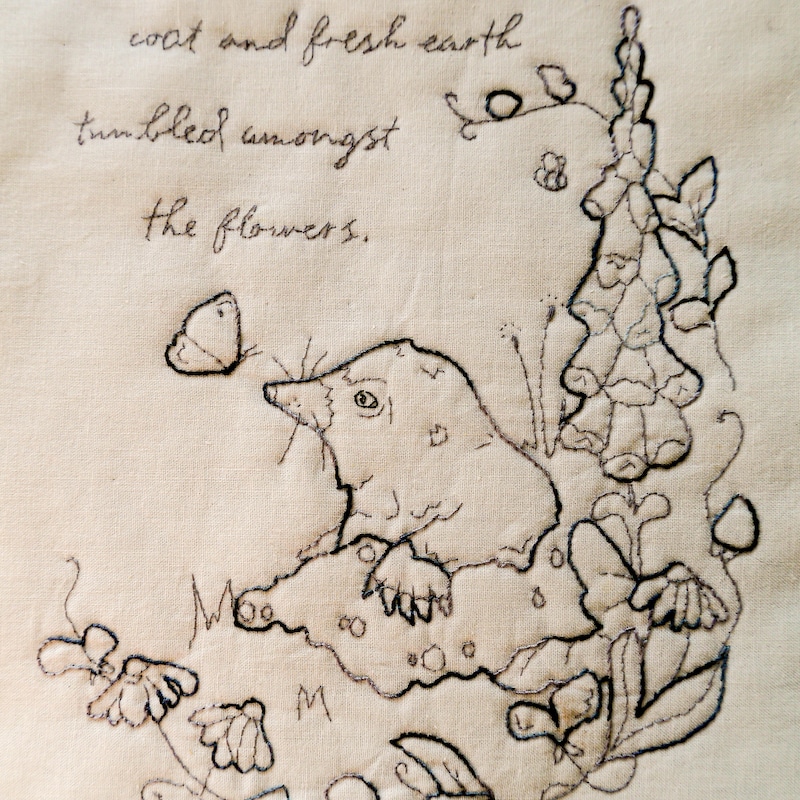 coat and fresh earth
tumbled amongst
the flowers.